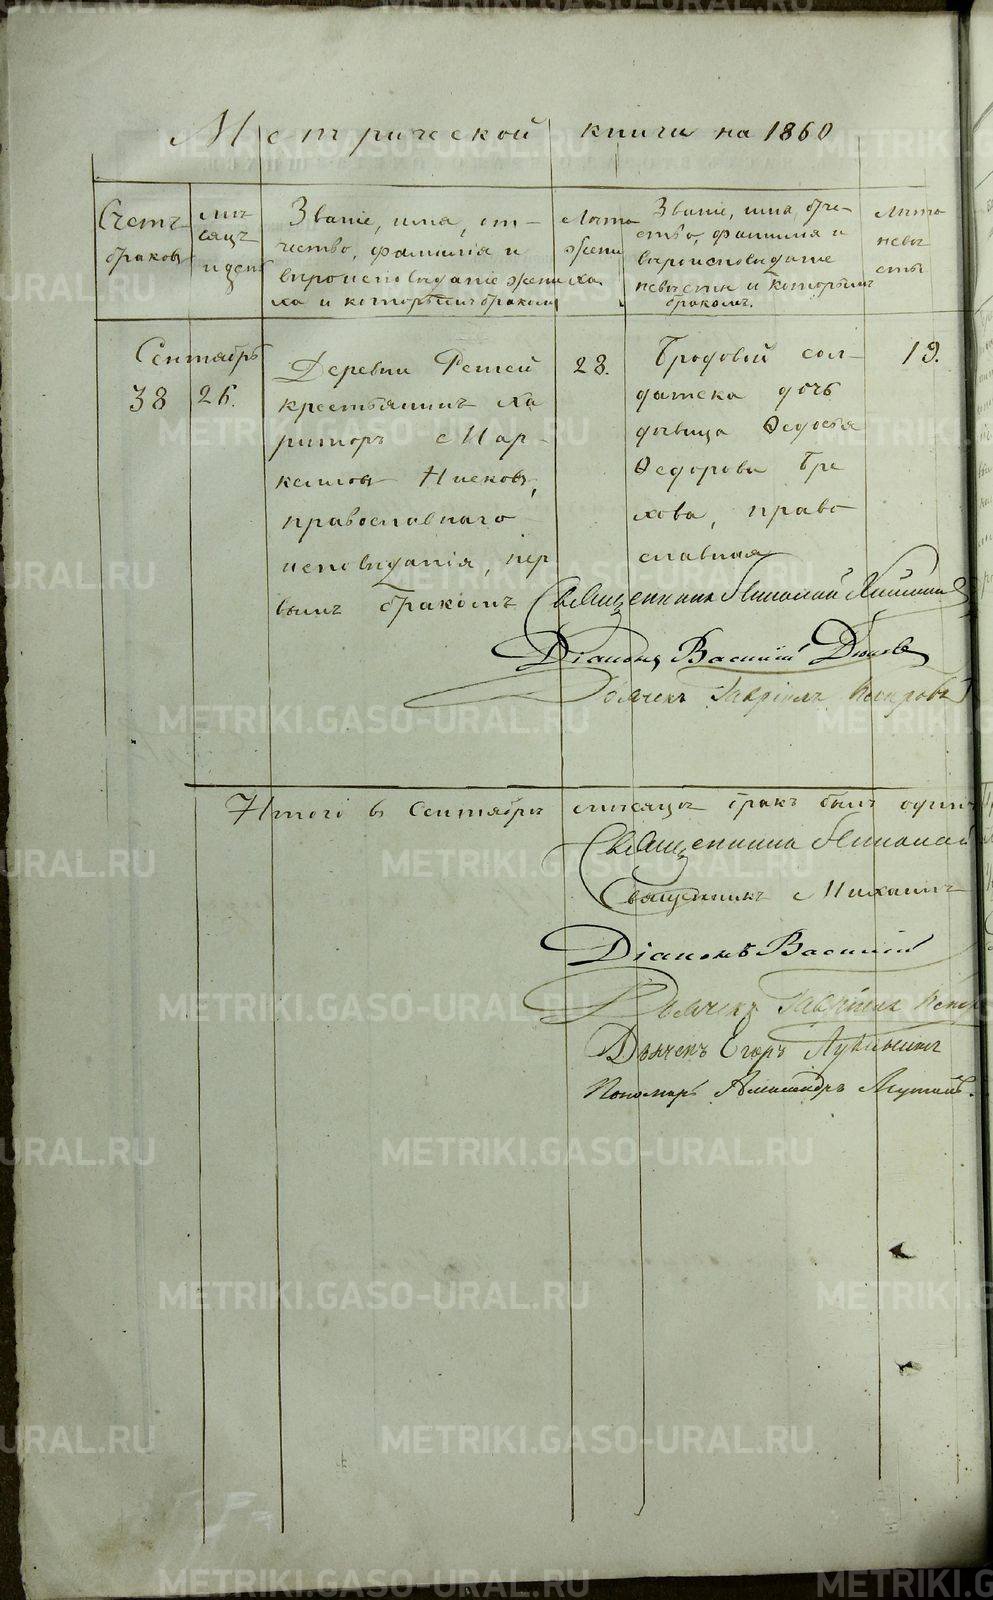 Метрической книги на 1860
Счетъ браковъ
мѣсяцъ и день
Званіе, имя, отчество, фамилія и вѣроисповѣданіе жениха и которымъ бракомъ
Лѣта жениха
Званіе, имя, отчество, фамилія и вѣроисповѣданіе невѣсты и которымъ бракомъ.
Лѣта невѣсты
Сентябрь
38
26.
Деревни Решей
крестьянинъ Ха
ритонъ Мар-
келловъ
православнаго
исповѣданія, пер
вымъ бракомъ
28.
Бродовой сол-
датска дочь
дѣвица Ѳедосья
Ѳедорова Гре
хова, право
славная
19.
Священникъ Николай
Діаконъ Василій
Дьячекъ Гавріилъ
Итого въ Сентябрѣ мѣсяцѣ бракъ былъ одинъ
Священникъ Николай
Священникъ Михаилъ
Діаконъ Василій
Дьячекъ Гавріилъ
Дьячекъ Егоръ Лукиныхъ
Пономарь Александръ
METRIKI.GASO-URAL.RU